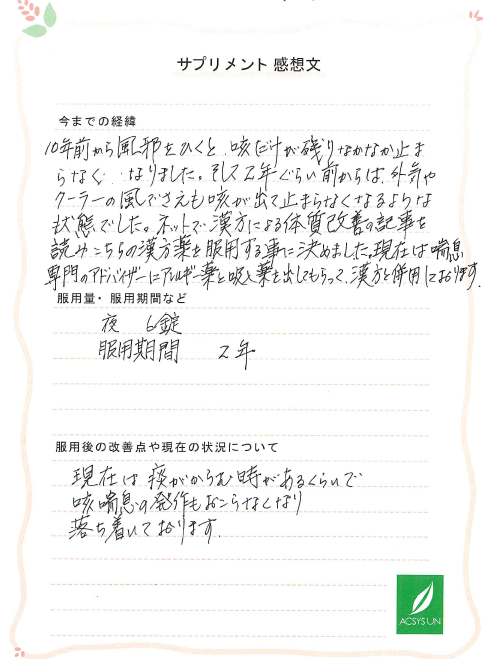 サプリメント 感想文
今までの経緯
10年前から風邪をひくと、咳だけが残りなかなか止ま
らなく、なりました。そして2年ぐらい前からは、外気や
クーラーの風でさえも咳が出て止まらなくなるような
状態でした。ネットで漢方による体質改善の記事を
読みこちらの漢方薬を服用する事に決めました。現在は喘息
専門のアドバイザーにアレルギー薬と吸入薬を出してもらって、漢方と併用しております。
服用量・服用期間など
夜 6錠
服用期間 2年
服用後の改善点や現在の状況について
現在は痰がからむ時があるくらいで
咳喘息の発作もおこらなくなり
落ち着いております。
ACSYSUN